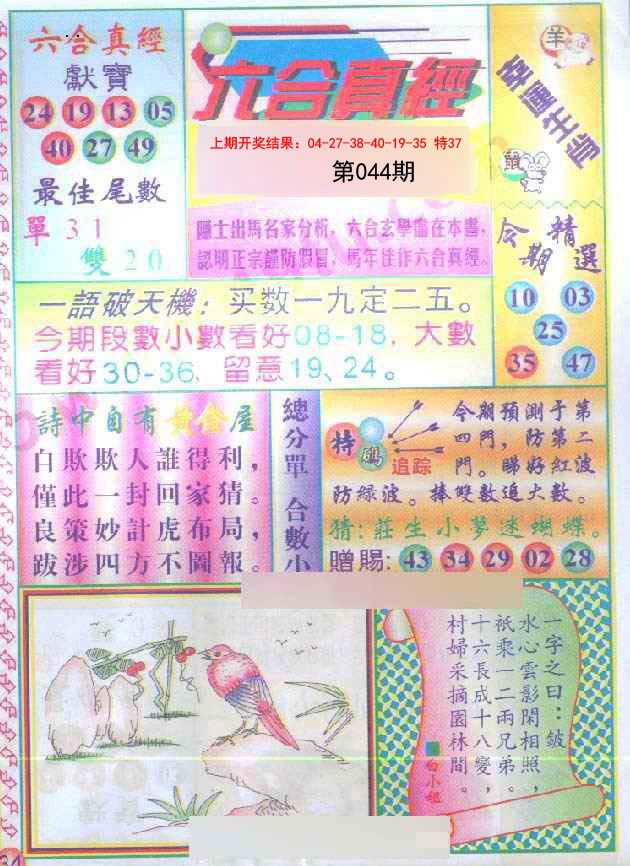 六合真經
獻寶
24 19 13 05
40 27 49
最佳尾數
單31
雙20
六合真經
上期开奖结果：04-27-38-40-19-35 特37
第044期
隱士出馬名家分析，六合玄學儘在本書，
認明正宗謹防假冒，馬年佳作六合真經。
羊
幸運生肖
鼠
今期精選
10 03
25
35 47
一語破天機：买数一九定二五。
今期段數小數看好08-18，大數
看好30-36、留意19、24。
詩中自有黃金屋
自欺欺人誰得利，
僅此一封回家猜。
良策妙計虎布局，
跋涉四方不圖報。
總分單 合數小
特碼
追踪
今期預測于第
四門，防第二
門。睇好紅波
防綠波。捧雙數追大數。
猜：莊生小夢迷蝴蝶。
贈賜：43 34 29 02 28
一字之曰：皴
水心雲影閑相照，
祇乘一二兩兄弟。
十六長成十八變，
村婦采摘園林間。
白小姐
34